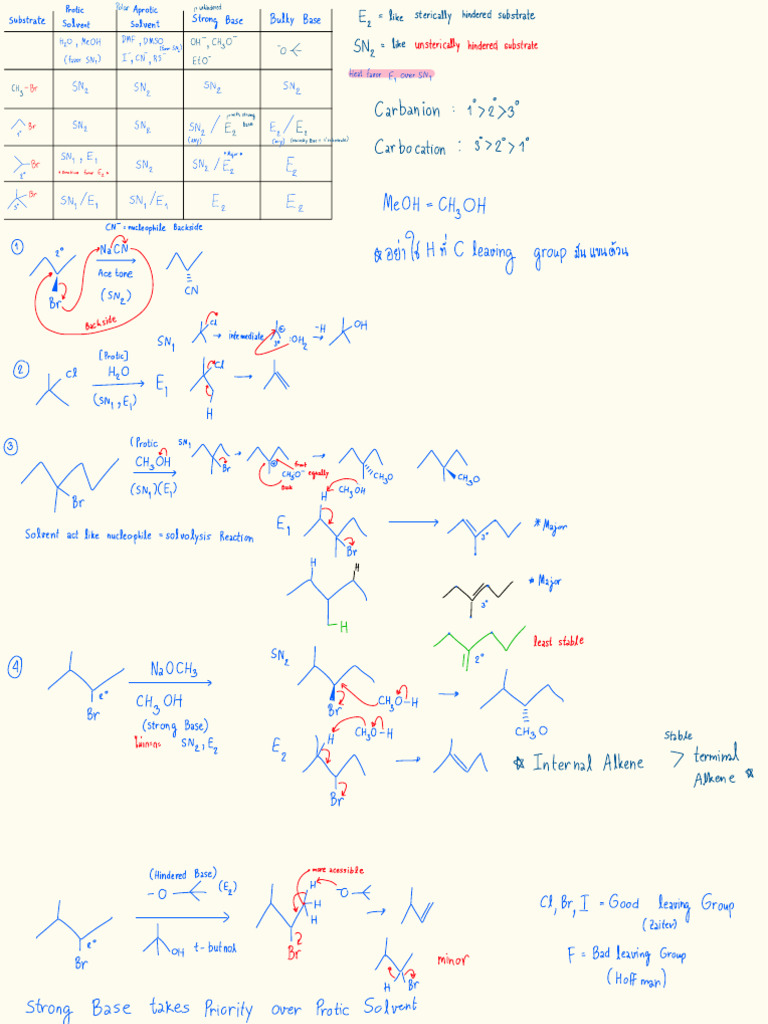 Substrate
Protic Solvent
Polar Aprotic Solvent
unhindered Strong Base
Bulky Base
H₂O, MeOH (favor SN₁)
DMF, DMSO I⁻, CN⁻, RS⁻ (favor SN₂)
OH⁻, CH₃O⁻ EtO⁻
⁻O
CH₃-Br SN₂ SN₂ SN₂ SN₂
Br 1° SN₂ SN₂ SN₂/E₂ (any) with strong Base E₂/E₂ (any)
Br 2° SN₁, E₁ SN₂ SN₂/E₂ *Major* E₂
Br 3° SN₁/E₁ SN₁/E₁ E₂ E₂
E₂ = like sterically hindered substrate
SN₂ = like unsterically hindered substrate
Heat favor E₁ over SN₁
Carbanion : 1°>2°>3°
Carbocation : 3°>2°>1°
MeOH = CH₃OH
☆ อย่าใช้ H ที่ C leaving group มันแขนด้วน
CN⁻ = nucleophile Backside
① 2° Br NaCN Acetone (SN₂) CN
Backside
SN₁ Cl intermediate ⊕ 3° :OH₂ -H OH
② Cl [Protic] H₂O (SN₁, E₁) E₁ Cl H
③ Br (Protic CH₃OH (SN₁)(E₁) SN₁ Br ⊕ front CH₃O⁻ equally Back CH₃O CH₃O
Solvent act like nucleophile = solvolysis Reaction
E₁ H CH₃OH Br 3° * Major
H H H 3° * Major
2° least stable
④ 2° Br NaOCH₃ CH₃OH (Strong Base) SN₂, E₂
SN₂ Br CH₃O-H CH₃O
E₂ H CH₃O-H Br
☆ Internal Alkene > stable terminal Alkene ☆
2° Br (Hindered Base) -O (E₂) OH t-butnol
more acessible H H H ⁻O Br
H Br minor
Cl, Br, I = Good leaving Group
(Zaitev)
F = Bad leaving Group
(Hoffman)
Strong Base takes Priority over Protic Solvent